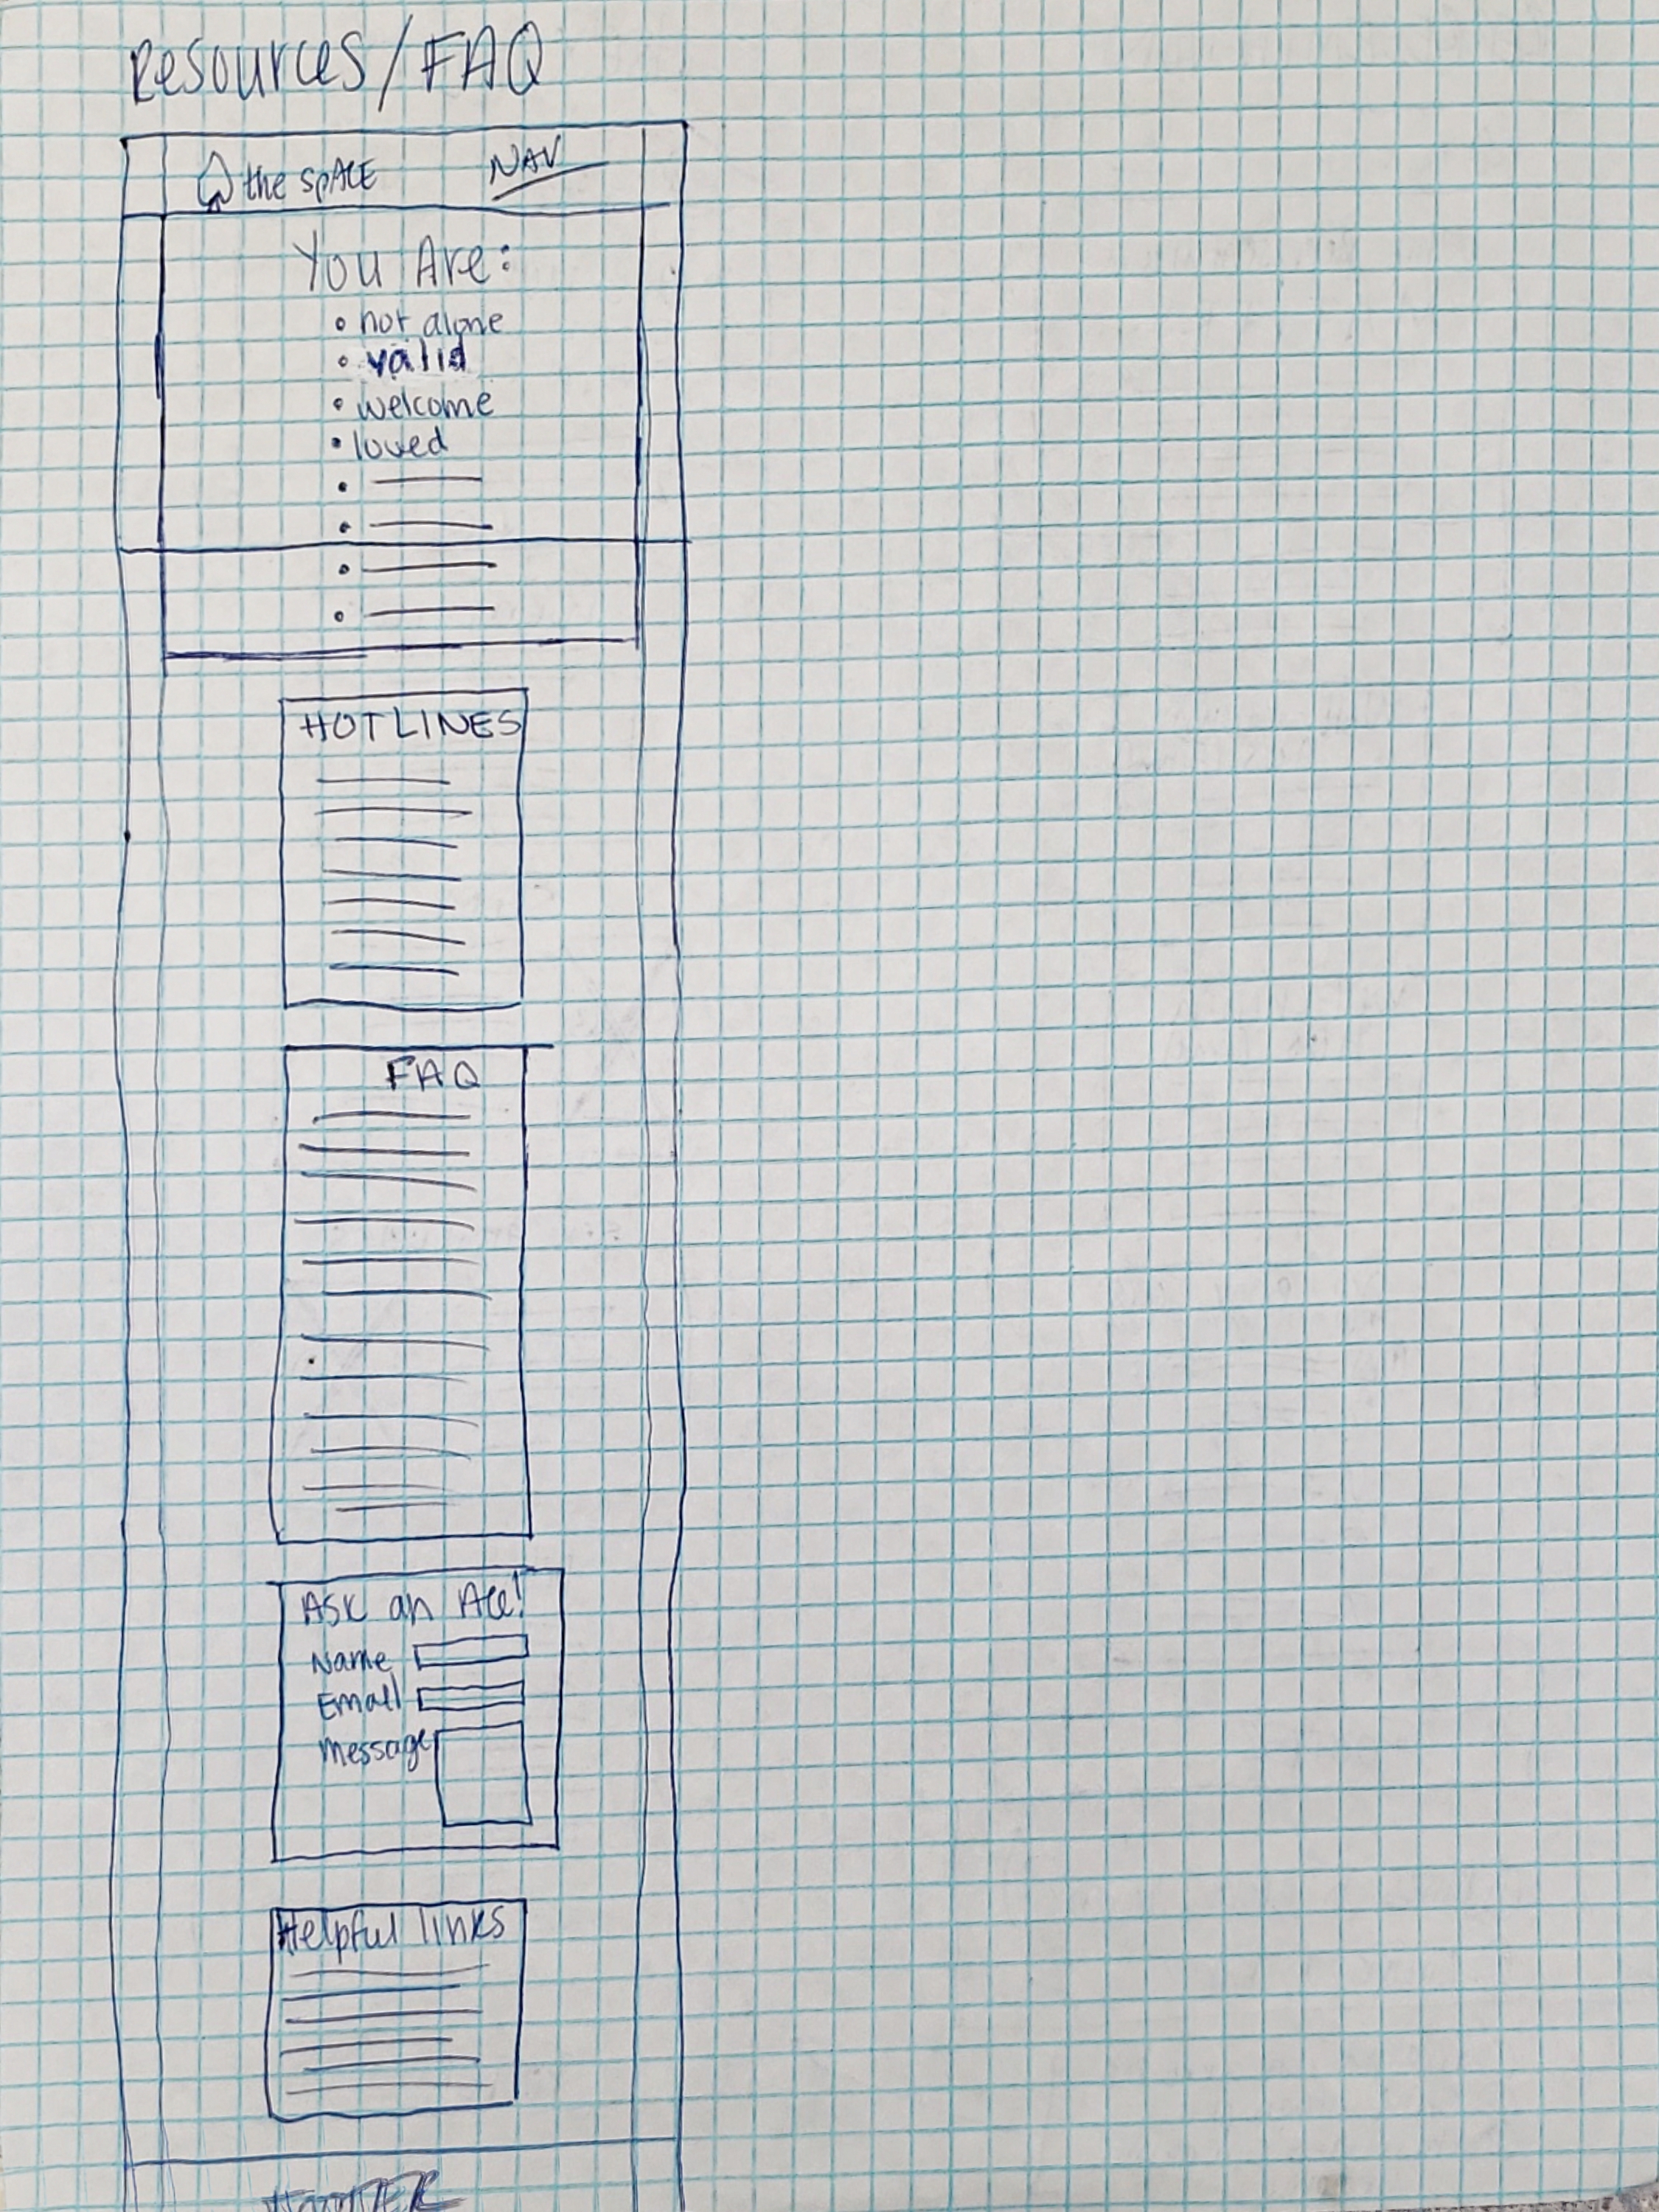 Resources/FAQ
the spACE NAV
You Are:
• not alone
• valid
• welcome
• loved
HOTLINES
FAQ
Ask an Ace!
Name
Email
Message
Helpful links